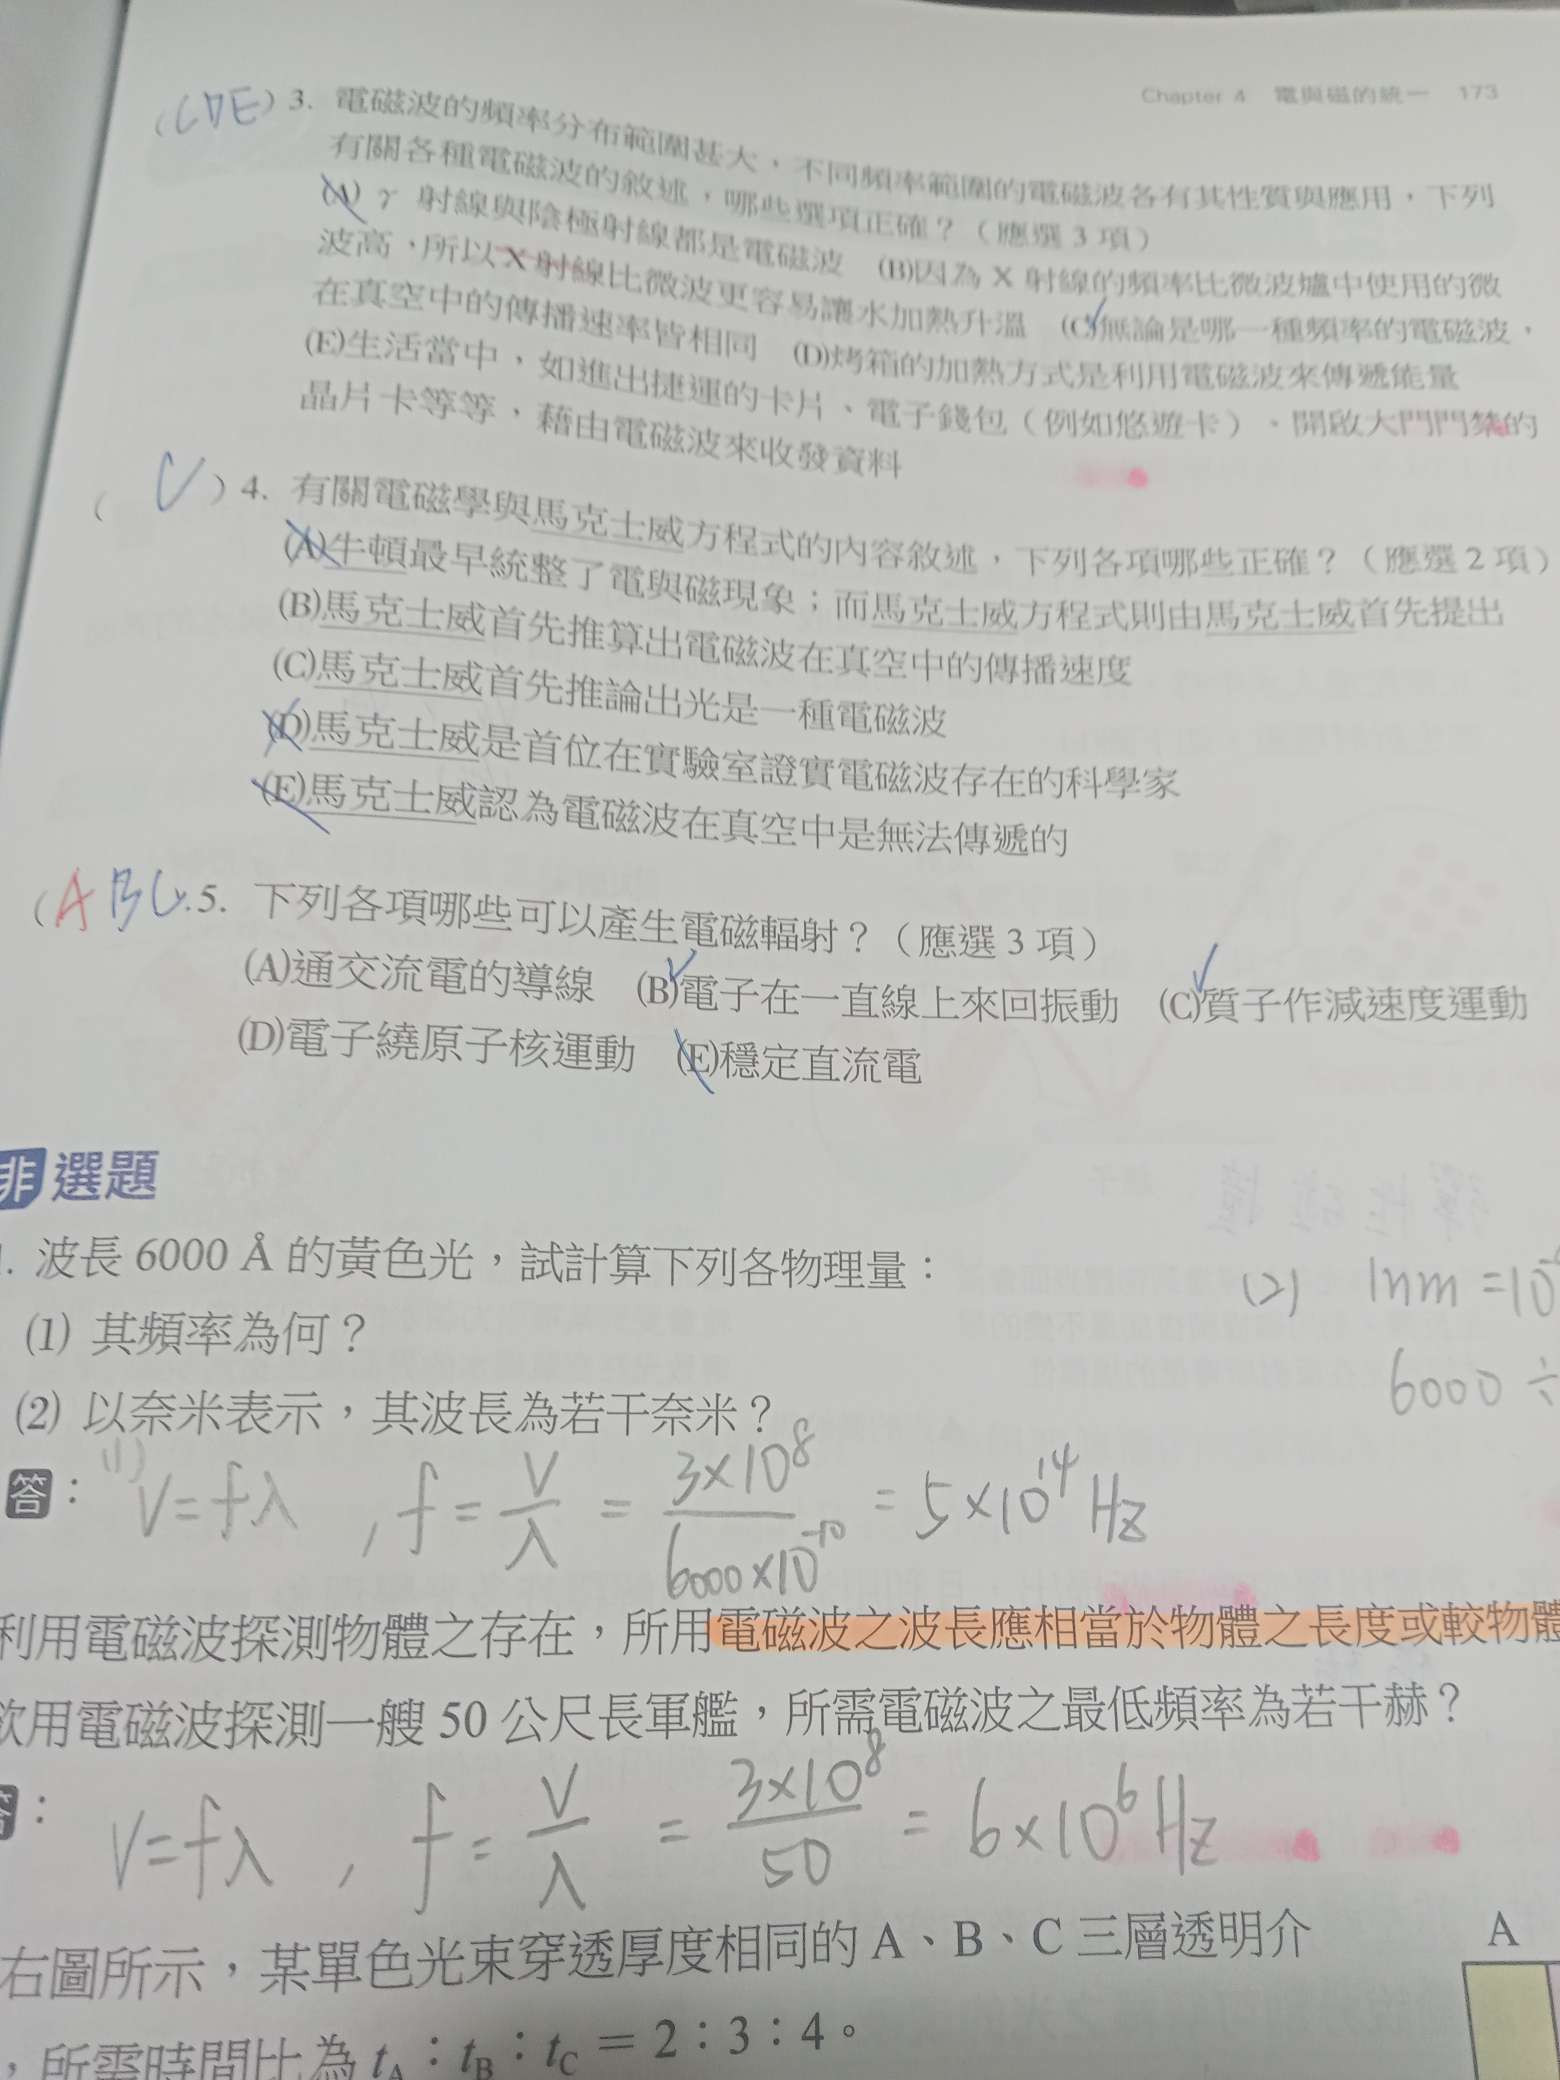 Chapter 4 電與磁的統一 173
(CDE) 3. 電磁波的頻率分布範圍甚大，不同頻率範圍的電磁波各有其性質與應用，下列
有關各種電磁波的敘述，哪些選項正確？（應選 3 項）
(A) γ 射線與陰極射線都是電磁波 (B)因為 X 射線的頻率比微波爐中使用的微
波高，所以 X 射線比微波更容易讓水加熱升溫 (C)無論是哪一種頻率的電磁波，
在真空中的傳播速率皆相同 (D)烤箱的加熱方式是利用電磁波來傳遞能量
(E)生活當中，如進出捷運的卡片、電子錢包（例如悠遊卡）、開啟大門門禁的
晶片卡等等，藉由電磁波來收發資料
( ) 4. 有關電磁學與馬克士威方程式的內容敘述，下列各項哪些正確？（應選 2 項）
(A)牛頓最早統整了電與磁現象；而馬克士威方程式則由馬克士威首先提出
(B)馬克士威首先推算出電磁波在真空中的傳播速度
(C)馬克士威首先推論出光是一種電磁波
(D)馬克士威是首位在實驗室證實電磁波存在的科學家
(E)馬克士威認為電磁波在真空中是無法傳遞的
(ABC 5. 下列各項哪些可以產生電磁輻射？（應選 3 項）
(A)通交流電的導線 (B)電子在一直線上來回振動 (C)質子作減速度運動
(D)電子繞原子核運動 (E)穩定直流電
非選題
. 波長 6000 Å 的黃色光，試計算下列各物理量：
(1) 其頻率為何？
(2) 以奈米表示，其波長為若干奈米？
(2) 1nm = 10
6000 ÷
答： (1) V=fλ , f = V/λ = 3×10⁸/6000×10⁻¹⁰ = 5×10¹⁴ Hz
利用電磁波探測物體之存在，所用電磁波之波長應相當於物體之長度或較物體
欲用電磁波探測一艘 50 公尺長軍艦，所需電磁波之最低頻率為若干赫？
答： V=fλ , f = V/λ = 3×10⁸/50 = 6×10⁶ Hz
右圖所示，某單色光束穿透厚度相同的 A、B、C 三層透明介
A
，所需時間比為 tA：tB：tC = 2：3：4。